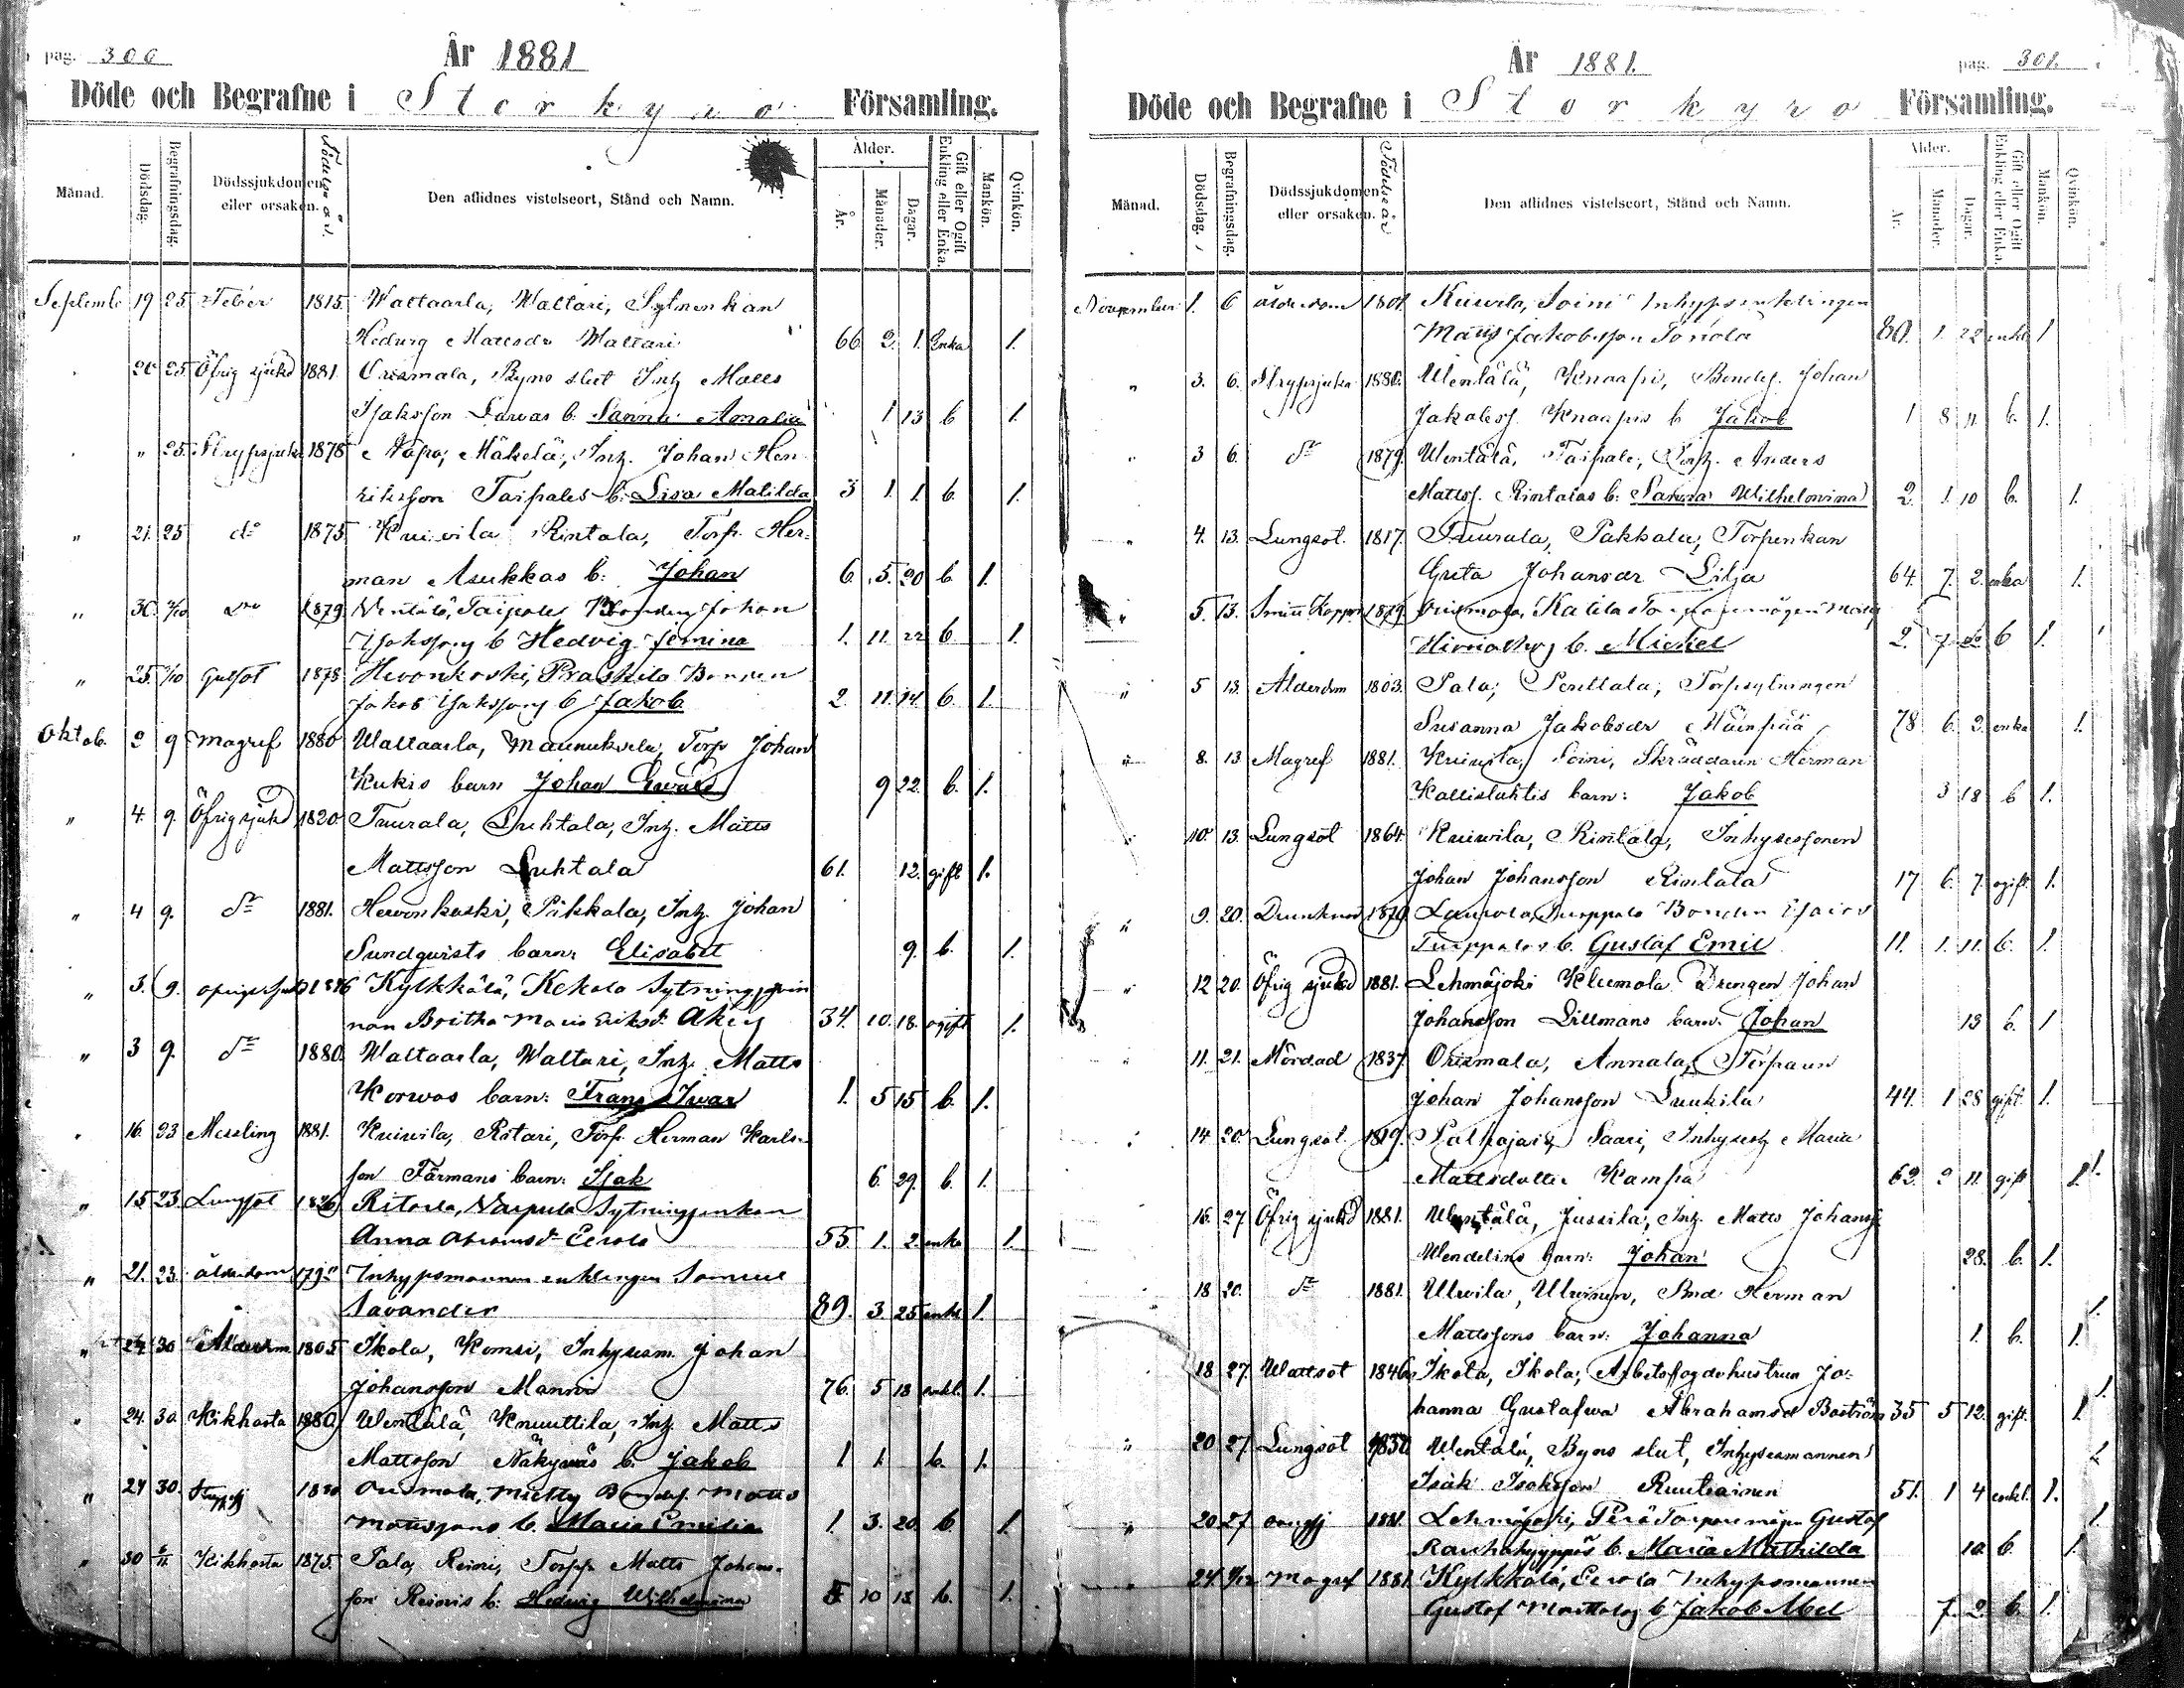 pag. 300
År 1881
Döde och Begrafne i Storkyro Församling.
Månad.
Dödsdag.
Begrafningsdag.
Dödssjukdomen eller orsaken.
Födelse år.
Den aflidnes vistelseort, Stånd och Namn.
Ålder.
År.
Månader.
Dagar.
Gift eller Ogift Enkling eller Enka.
Mankön.
Qvinkön.
Septemb 19 25 Feber 1815. Waltaarla, Waltari, Sytnenkan
Hedvig Mattsdr Waltari 66 2. 1. Enka 1.
20 25 Öfrig sjukd 1881. Orismala, Byns slut Inh Matts
Isaksson Larvas b. Sanna Amalia 1 13 b 1.
" 25. Strypsjuka 1878 Napo, Mäkelä, Inh. Johan Hen
riksson Taipales b. Lisa Matilda 3 1. 1. b. 1.
" 21. 25 do 1875 Kuivila Rintala, Torp. Her=
man Asukkas b. Johan 6. 5. 20 b. 1.
" 30. 2/10 1879 Wentälä, Taipale Bonden Johan
Isakssons b Hedvig Jemina 1. 11. 22 b. 1.
" 25. 2/10 Gulsot 1878 Hevonkoski, Prashila Bonden
Jakob Isakssons b Jakob 2. 11. 14 b. 1.
Oktob. 2 9 Magref 1880 Waltaarla, Maunuksela, Torp Johan
Kukis barn Johan Ewald 9 22. b. 1.
" 4. 9. Öfrig sjukd 1820 Tuurala, Luhtala, Inh. Matts
Mattsson Luhtala 61. 12. gift 1.
" 4 9. do 1881. Hevonkoski, Pikkala, Inh. Johan
Sundqvists barn: Elisabet 9. b. 1.
" 3. 9. Kylkkälä, Kekola Sytning
nan Britha Maria Eriksdr 34. 10. 18. ogift 1.
" 3 9. do 1880. Waltaarla, Waltari, Inh. Matts
Korwas barn: Frans Iwar 1. 5 15 b. 1.
16. 23 Messling 1881. Kuivila, Ritari, Torp. Herman Karls=
son Färmans barn: Isak 6. 29. b. 1.
" 15 23. Lungsot 1826 Ritaala, Warpula Sytningsenkan
Anna Abramsdr Eerola 55. 1. 2. enka 1.
" 21. 23. ålderdom Inhysmannen enklingen Samuel
Savander 89. 3. 25 enkl 1.
" 24 30 Ålderdom 1805 Ikola, Komsi, Inhysesm. Johan
Johansson Manni 76. 5 18 enkl. 1.
24. 30 Kikhosta 1880 Wentälä, Knuuttila, Inh. Matts
Mattsson b. Jakob 1. 1. b. 1.
" 24 30. Orismala, Matts
Mattssons b. Maria Emilia 1. 3. 20 b. 1.
30 6/11 Kikhosta 1875. Pala, Reini, Torp. Matts Johans=
son Reinis b. Hedvig Wilhelmina 5 10 13 b. 1.
År 1881.
pag. 301.
Döde och Begrafne i Storkyro Församling.
Månad.
Dödsdag.
Begrafningsdag.
Dödssjukdomen eller orsaken.
Födelseår
Den aflidnes vistelseort, Stånd och Namn.
Ålder.
År.
Månader.
Dagar.
Gift eller Ogift Enkling eller Enka.
Mankön.
Qvinkön.
November 1. 6 ålderdom 1801. Kuivila, Soini Inhysenklingen
Matts Jakobsson 80. 1. 22 enkl 1
" 3. 6. Strypsjuka 1880. Wentälä, Knaapi, Bondes. Johan
Jakobss. Knaapis b Jakob 1 8 11 b. 1.
" 3 6. do 1879. Wentälä, Taipale, Inh. Anders
Mattss. Rintalas b: Sanna Wilhelmina 2. 1. 10 b. 1.
" 4. 13. Lungsot. 1817. Tuurala, Pakkala, Torpenkan
Greta Johansdr Lilja 64. 7. 2. enka 1.
" 5 13. Smitt Koppor 1879. Orismala, Kalila
b. Mickel 2. 7. b 1.
" 5 13. Ålderdom 1803. Pala, Penttala, Torpsytningen
Susanna Jakobsdr Mäinpää 78 6. 2. enka 1.
" 8. 13 Magref 1881. Kuivila, Soini, Skräddarn Herman
Kallisluhtis barn: Jakob 3 18 b 1.
10. 13. Lungsot 1864. Kuivila, Rintala, Inhysessonen
Johan Johansson Rintala 17 6. 7. ogift. 1.
" 9. 20. 1870 Bonden
b. Gustaf Emil 11. 1. 11. b. 1.
" 12 20. Öfrig sjukd 1881. Lehmäjoki Kleemola Drengen Johan
Johansson Lillmans barn. Johan 13 b. 1
11. 21. Mördad 1837. Orismala, Annala, Torparn
Johan Johansson Luukila 44. 1 28 gift. 1.
14 20 Lungsot 1819. Palhojais, Saari, Inhyseh Maria
Mattsdotter Kampa 62. 2 11. gift 1.
16. 27 Öfrig sjukd 1881. Wentälä, Jussila, Inh. Matts Johanss
Wendelins barn: Johan 28. b. 1.
18 20. do 1881. Ulwila, Ulwinen, Bnd Herman
Mattssons barn: Johanna 1. b. 1.
18 27. Wattsot 1846. Ikola, Ikola, Arbetsfogdehustrun Jo=
hanna Gustafwa Abrahamsdr Boström 35 5 12. gift. 1
" 20 27. Lungsot 1830 Wentälä, Byns slut, Inhysesmannen
Isak Isaksson Ruutiainen 51. 1 4 enkl. 1.
" 20 27 1881. Lehmäjoki, Gustaf
b. Maria Mathilda 10. b. 1.
24. 4/12 Magref 1881 Kylkkälä, Eerola Inhysmannen
Gustaf b Jakob Abel 7. 2 b. 1.